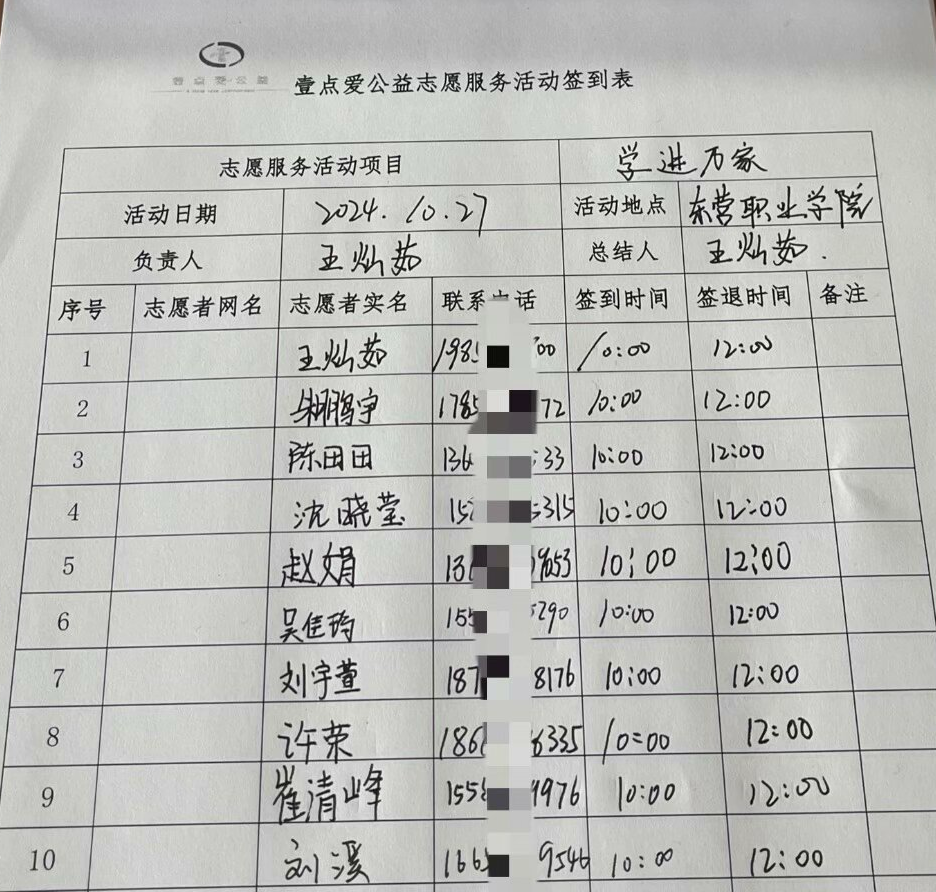 壹点爱公益
壹点爱公益志愿服务活动签到表
志愿服务活动项目 学进万家
活动日期 2024.10.27 活动地点 东营职业学院
负责人 王灿茹 总结人 王灿茹.
序号 志愿者网名 志愿者实名 联系 话 签到时间 签退时间 备注
1 王灿茹 198 00 10:00 12:00
2 鹏宇 178 72 10:00 12:00
3 陈田田 136 33 10:00 12:00
4 沈晓莹 15 315 10:00 12:00
5 赵娟 13 9653 10:00 12:00
6 吴佳筠 155 290 10:00 12:00
7 刘宇萱 187 8176 10:00 12:00
8 许荣 186 6335 10:00 12:00
9 崔清峰 155 4976 10:00 12:00
10 刘溪 166 9546 10:00 12:00